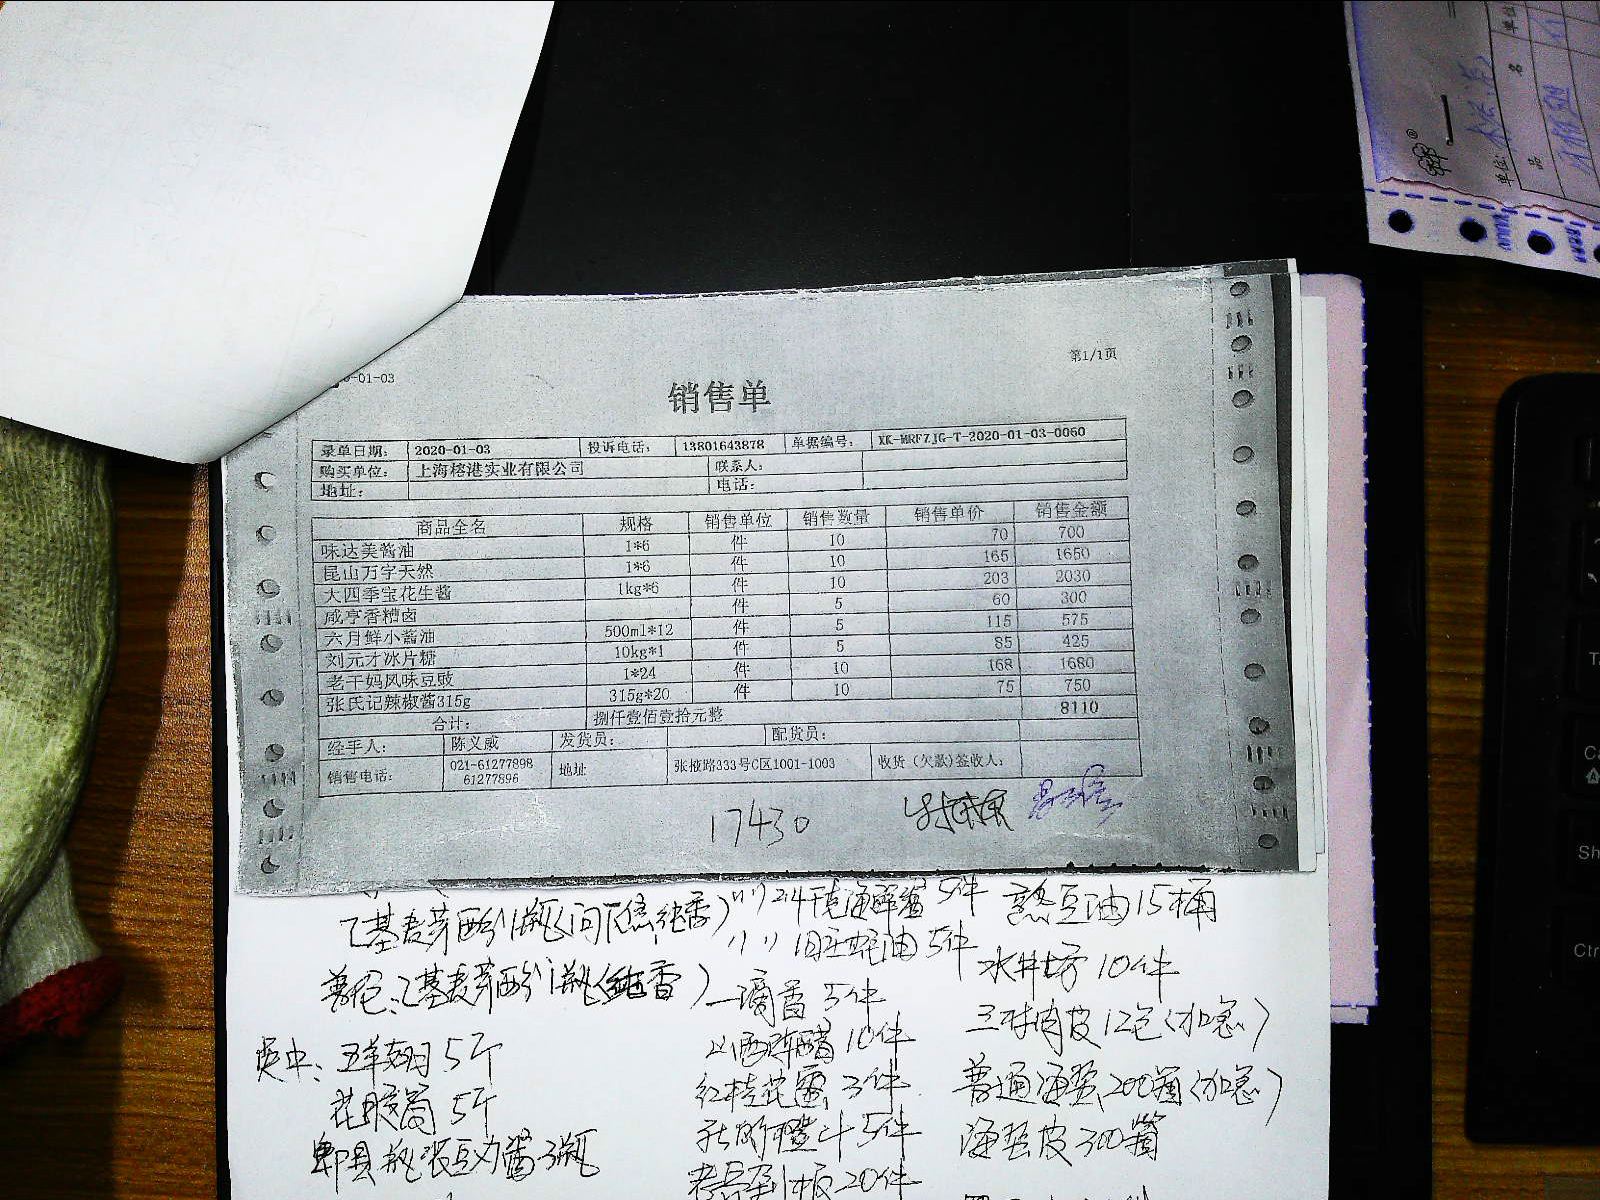 第1/1页
-01-03
销售单
录单日期： 2020-01-03 投诉电话： 13801643878 单据编号： XK-MRFZJG-T-2020-01-03-0060
购买单位： 上海榕港实业有限公司 联系人：
地址： 电话：
商品全名 规格 销售单位 销售数量 销售单价 销售金额
味达美酱油 1*6 件 10 70 700
昆山万字天然 1*6 件 10 165 1650
大四季宝花生酱 1kg*6 件 10 203 2030
咸亨香糟卤 件 5 60 300
六月鲜小酱油 500ml*12 件 5 115 575
刘元才冰片糖 10kg*1 件 5 85 425
老干妈风味豆豉 1*24 件 10 168 1680
张氏记辣椒酱315g 315g*20 件 10 75 750
合计： 捌仟壹佰壹拾元整 8110
经手人： 陈义威 发货员： 配货员：
销售电话： 021-61277898 61277896 地址 张掖路333号C区1001-1003 收货（欠款)签收人：
17430
乙基麦芽酚1瓶 24 海鲜酱 5件 熟豆油15桶
旧庄蚝油 5件 水井坊 10件
乙基麦芽酚1瓶(纯香) 一滴香 5件
肉皮12包(加急)
5个 山西陈醋 10件
花胶筒 5个 红桂花露 3件 普通海蜇200箱(加急)
5件 海蜇皮300箱
郫县瓶装豆瓣酱3瓶
20件
单位
品 名
单位